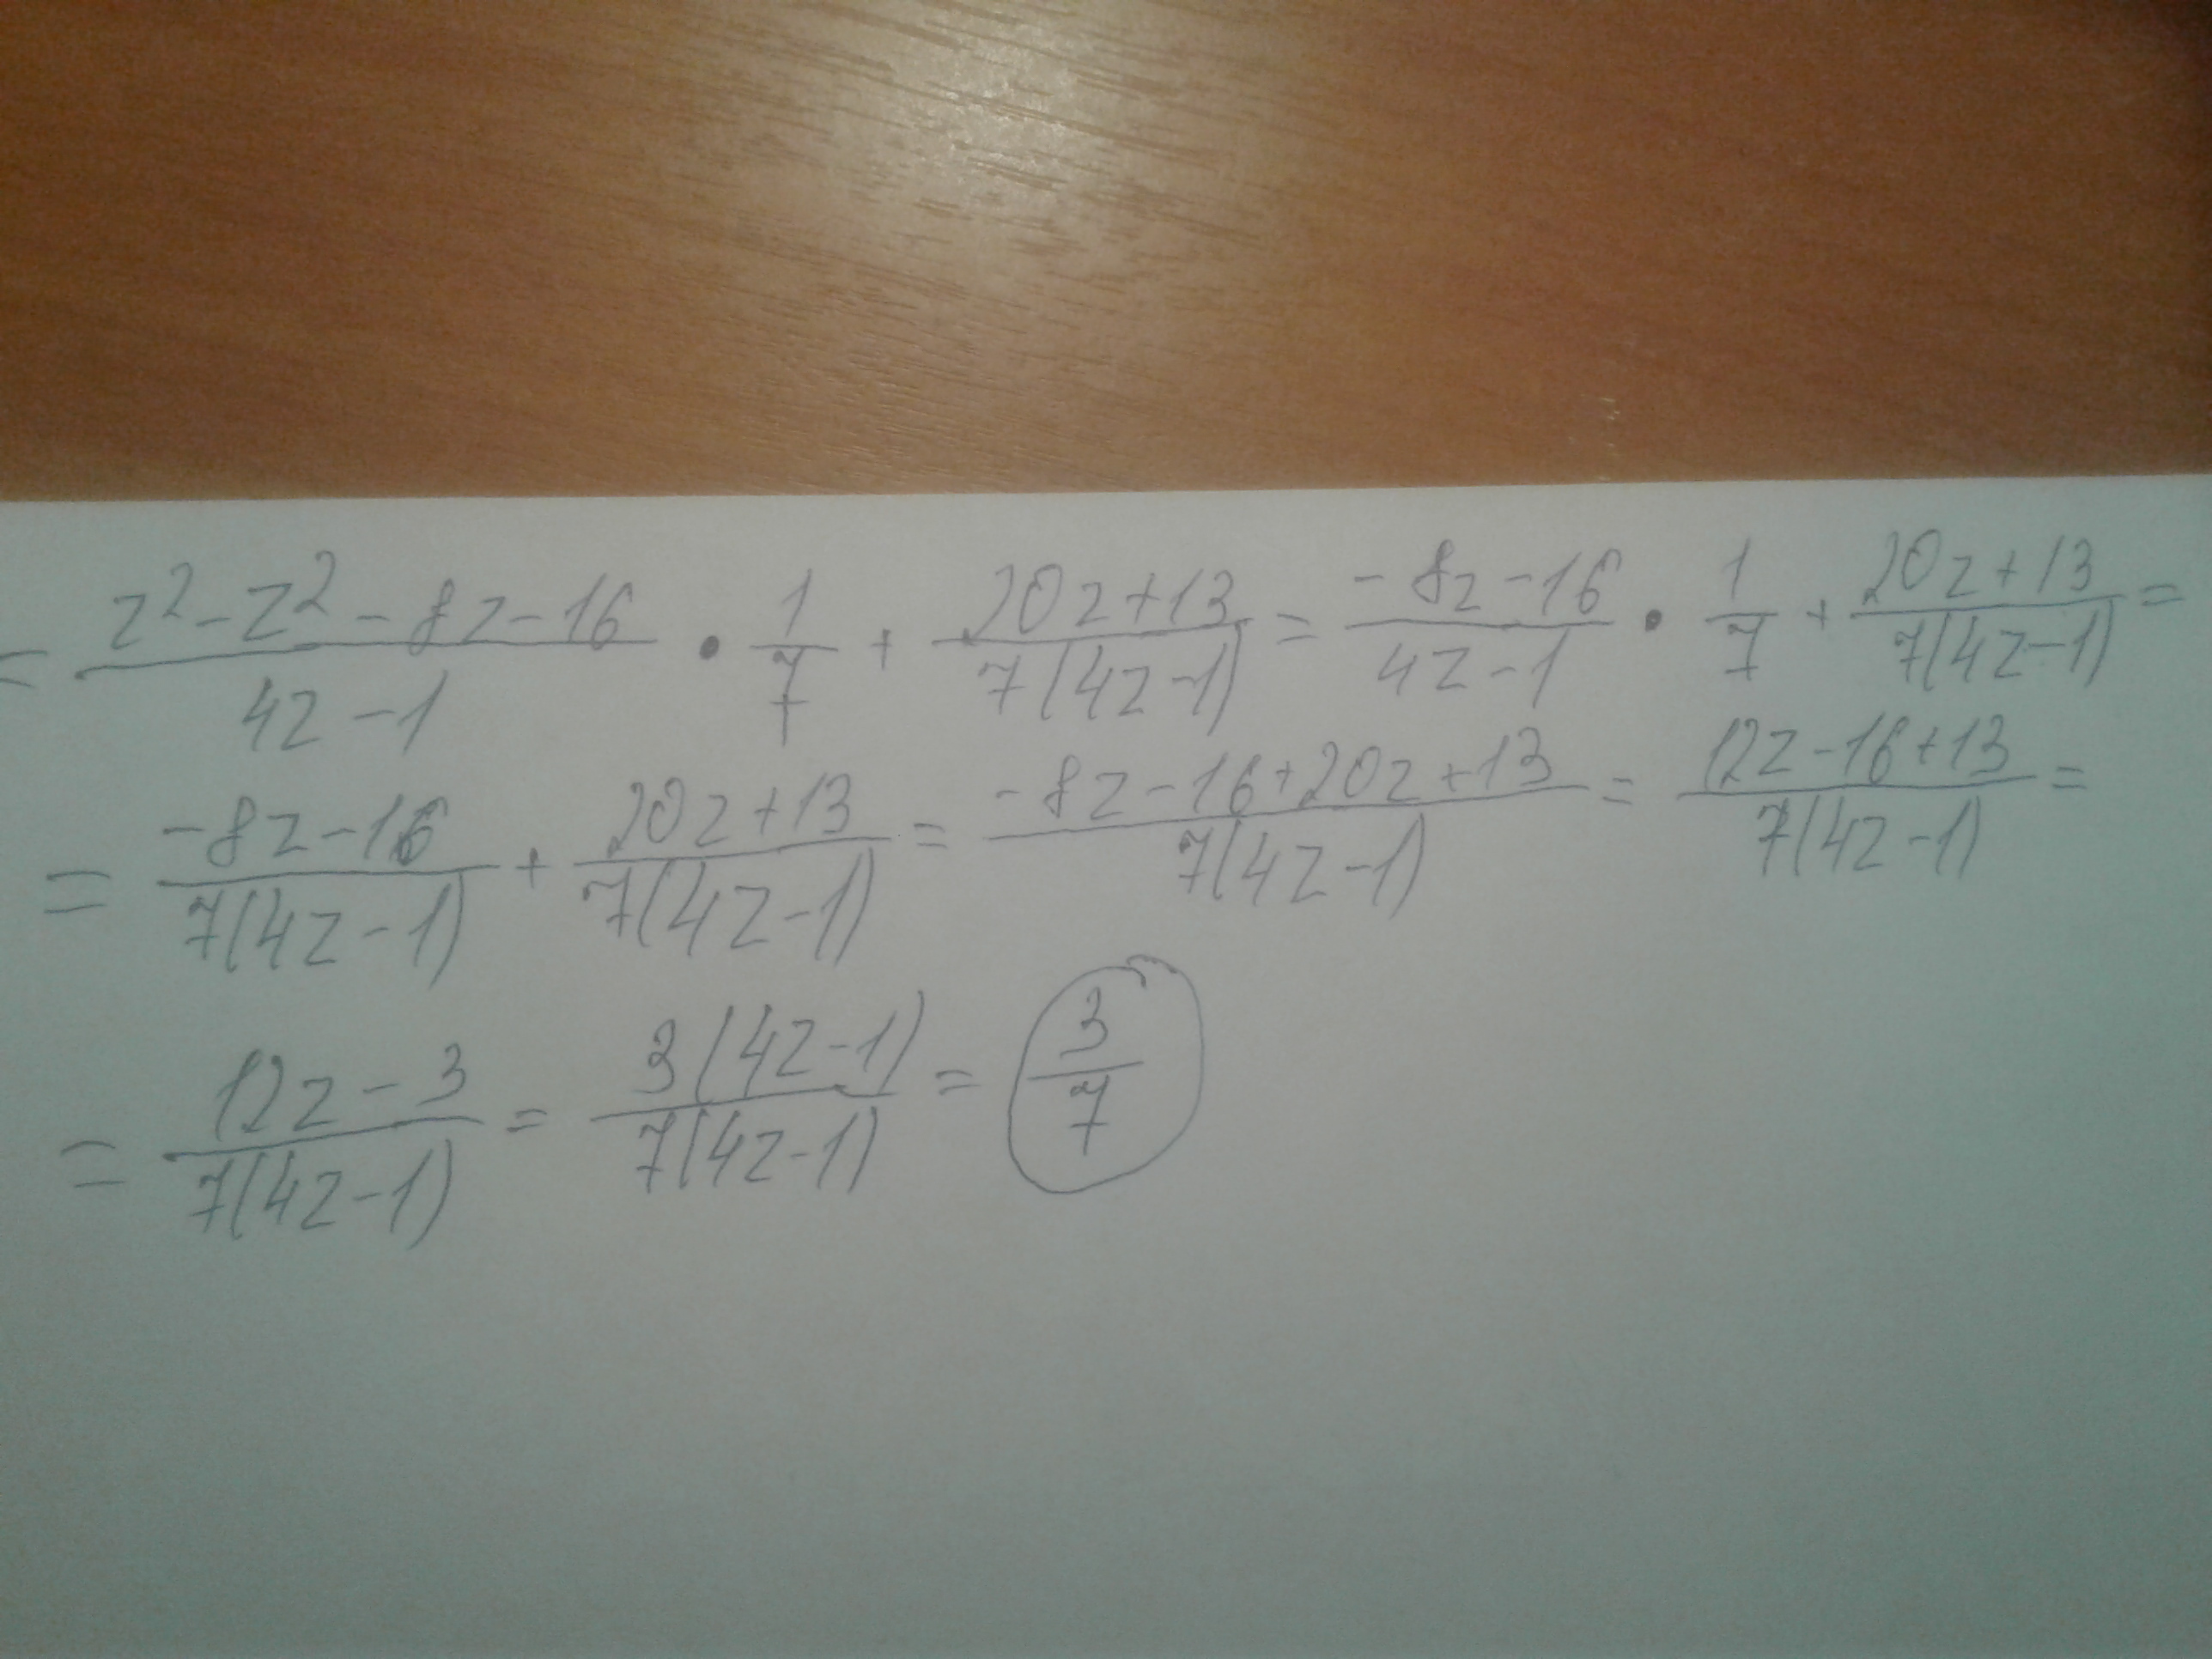 = (z² - z² - 8z - 16)/(4z - 1) • 1/7 + (20z + 13)/(7(4z - 1)) = (-8z - 16)/(4z - 1) • 1/7 + (20z + 13)/(7(4z - 1)) =
= (-8z - 16)/(7(4z - 1)) + (20z + 13)/(7(4z - 1)) = (-8z - 16 + 20z + 13)/(7(4z - 1)) = (12z - 16 + 13)/(7(4z - 1)) =
= (12z - 3)/(7(4z - 1)) = 3(4z - 1)/(7(4z - 1)) = 3/7